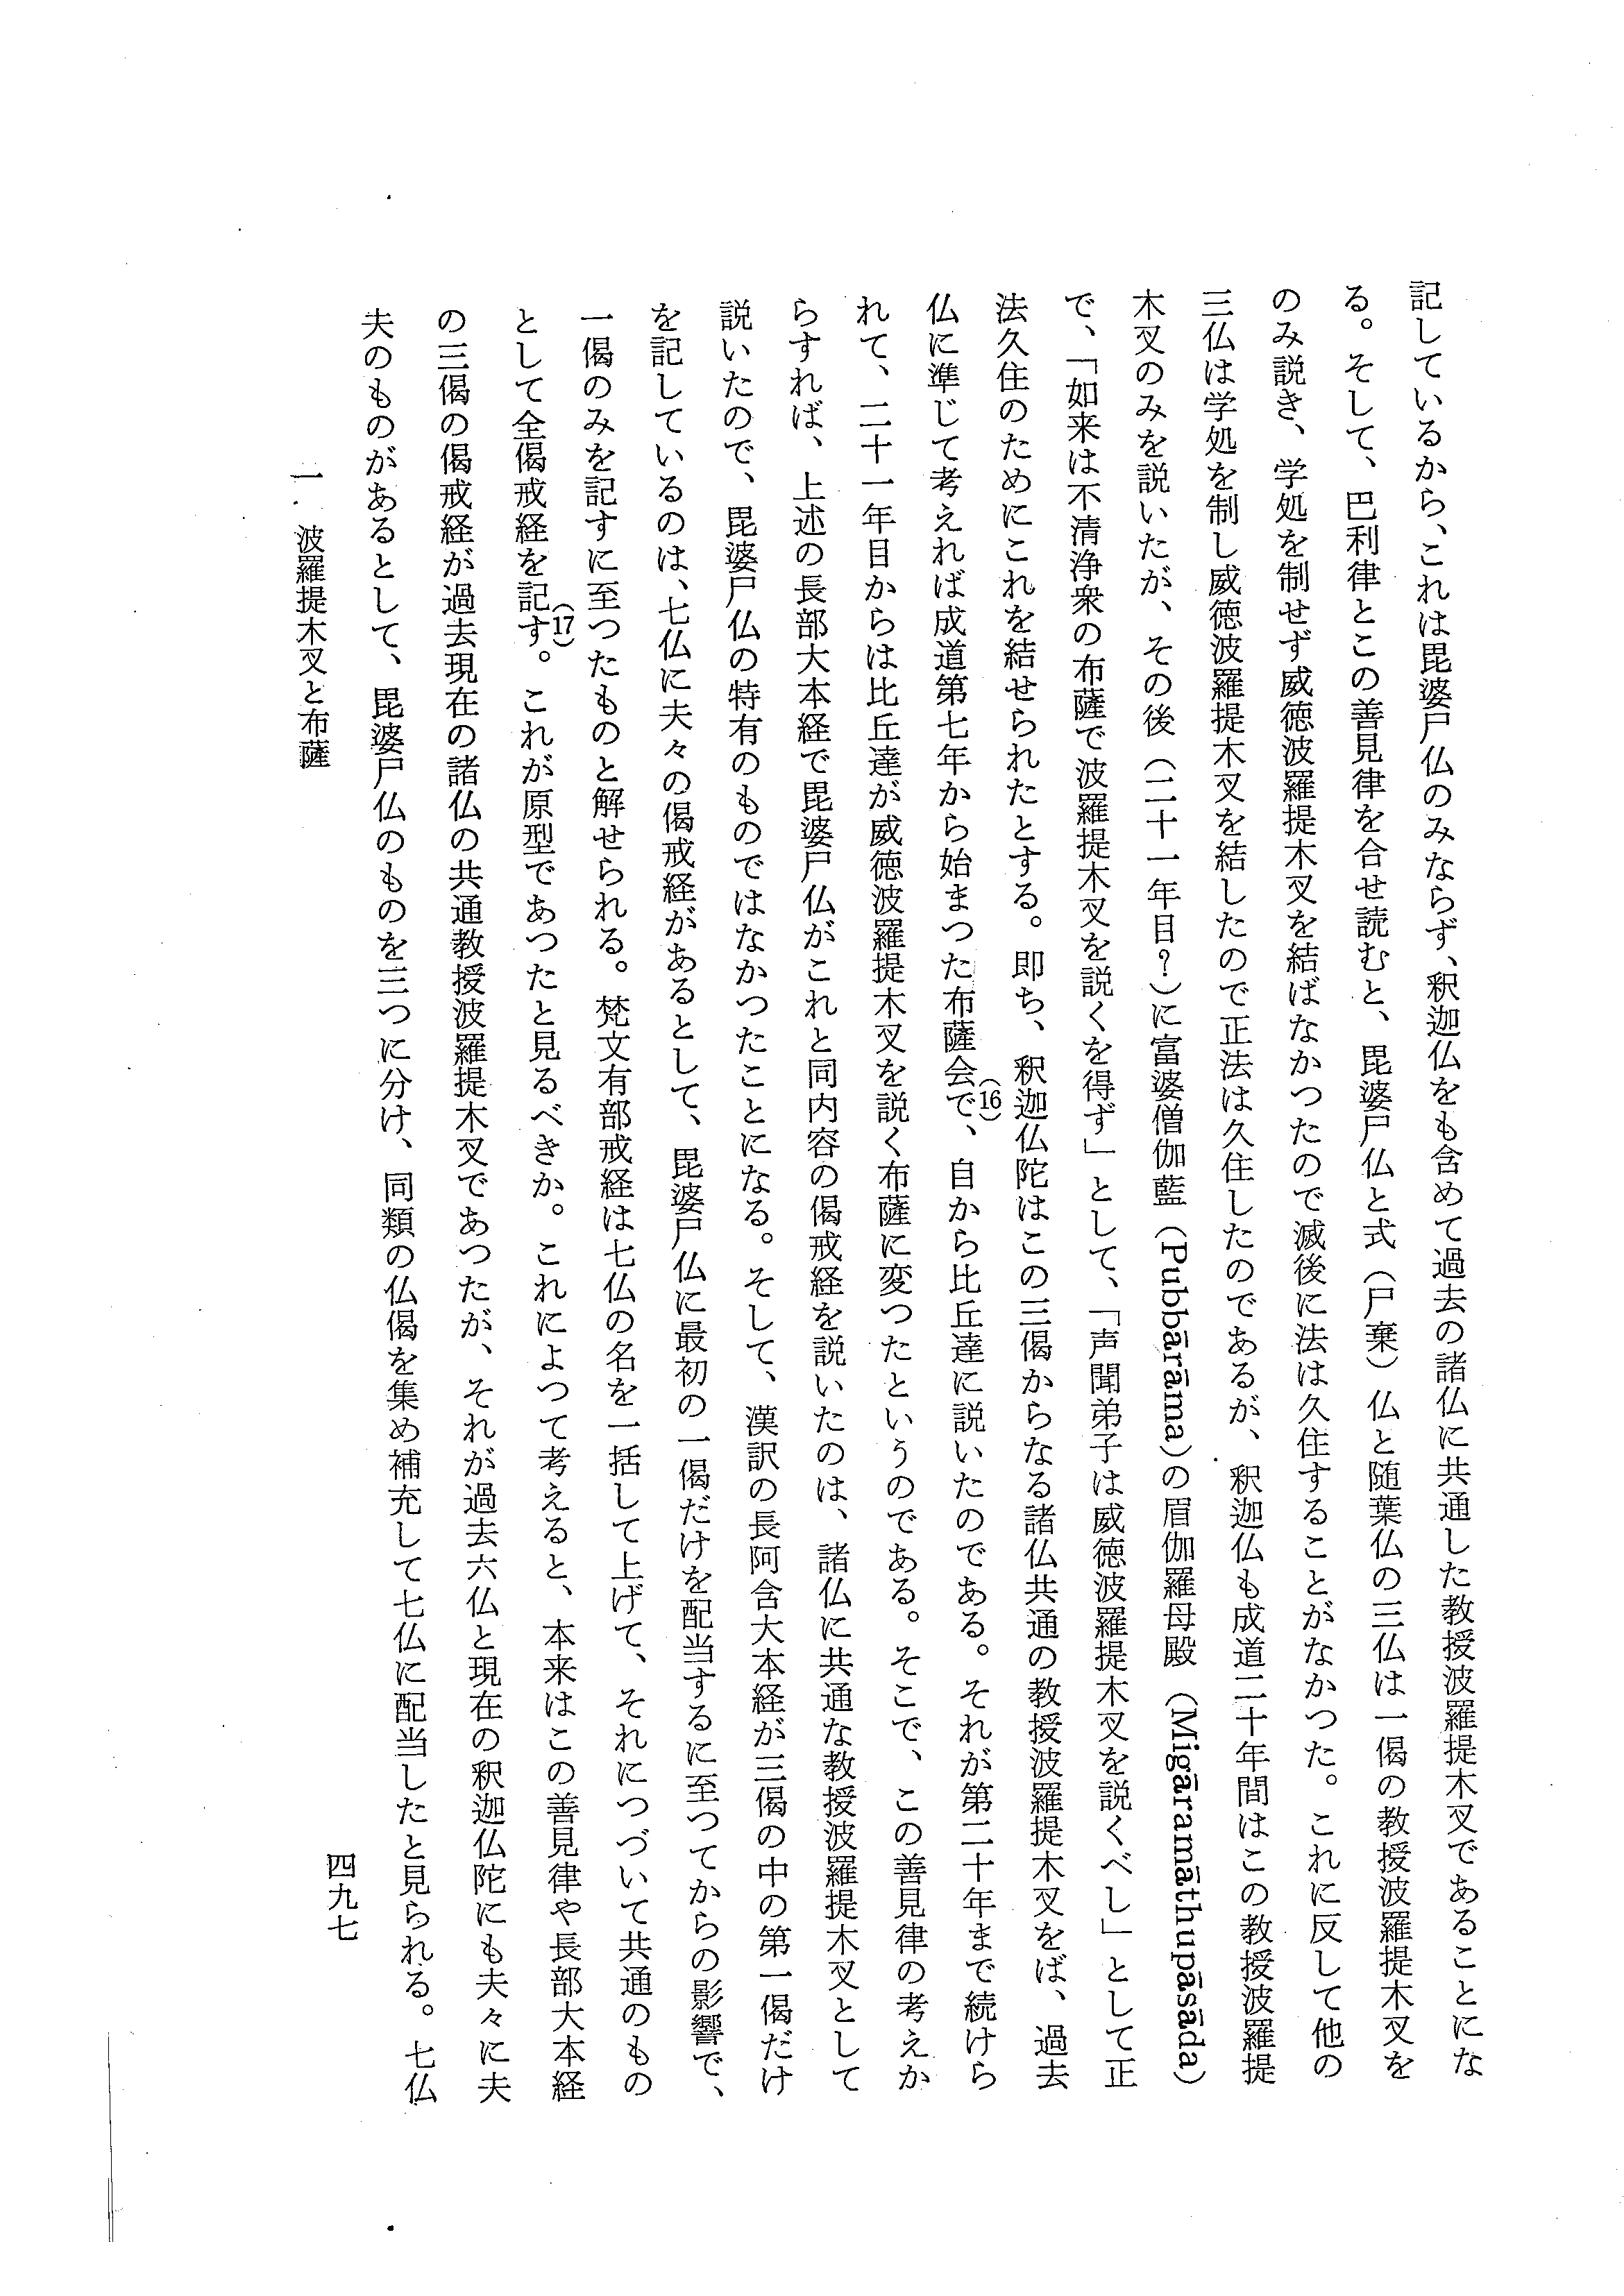 記しているから、これは毘婆尸仏のみならず、釈迦仏をも含めて過去の諸仏に共通した教授波羅提木叉であることにな
る。そして、巴利律とこの善見律を合せ読むと、毘婆尸仏と式（尸棄）仏と随葉仏の三仏は一偈の教授波羅提木叉を
のみ説き、学処を制せず威徳波羅提木叉を結ばなかつたので滅後に法は久住することがなかつた。これに反して他の
三仏は学処を制し威徳波羅提木叉を結したので正法は久住したのであるが、釈迦仏も成道二十年間はこの教授波羅提
木叉のみを説いたが、その後（二十一年目？）に富婆僧伽藍（Pubbārāma）の眉伽羅母殿（Migāramāthupāsāda）
で、「如来は不清浄衆の布薩で波羅提木叉を説くを得ず」として、「声聞弟子は威徳波羅提木叉を説くべし」として正
法久住のためにこれを結せられたとする。即ち、釈迦仏陀はこの三偈からなる諸仏共通の教授波羅提木叉をば、過去
仏に準じて考えれば成道第七年から始まつた布薩会で、(16)自から比丘達に説いたのである。それが第二十年まで続けら
れて、二十一年目からは比丘達が威徳波羅提木叉を説く布薩に変つたというのである。そこで、この善見律の考えか
らすれば、上述の長部大本経で毘婆尸仏がこれと同内容の偈戒経を説いたのは、諸仏に共通な教授波羅提木叉として
説いたので、毘婆尸仏の特有のものではなかつたことになる。そして、漢訳の長阿含大本経が三偈の中の第一偈だけ
を記しているのは、七仏に夫々の偈戒経があるとして、毘婆尸仏に最初の一偈だけを配当するに至つてからの影響で、
一偈のみを記すに至つたものと解せられる。梵文有部戒経は七仏の名を一括して上げて、それにつづいて共通のもの
として全偈戒経を記す。(17)これが原型であつたと見るべきか。これによつて考えると、本来はこの善見律や長部大本経
の三偈の偈戒経が過去現在の諸仏の共通教授波羅提木叉であつたが、それが過去六仏と現在の釈迦仏陀にも夫々に夫
夫のものがあるとして、毘婆尸仏のものを三つに分け、同類の仏偈を集め補充して七仏に配当したと見られる。七仏
一　波羅提木叉と布薩
四九七